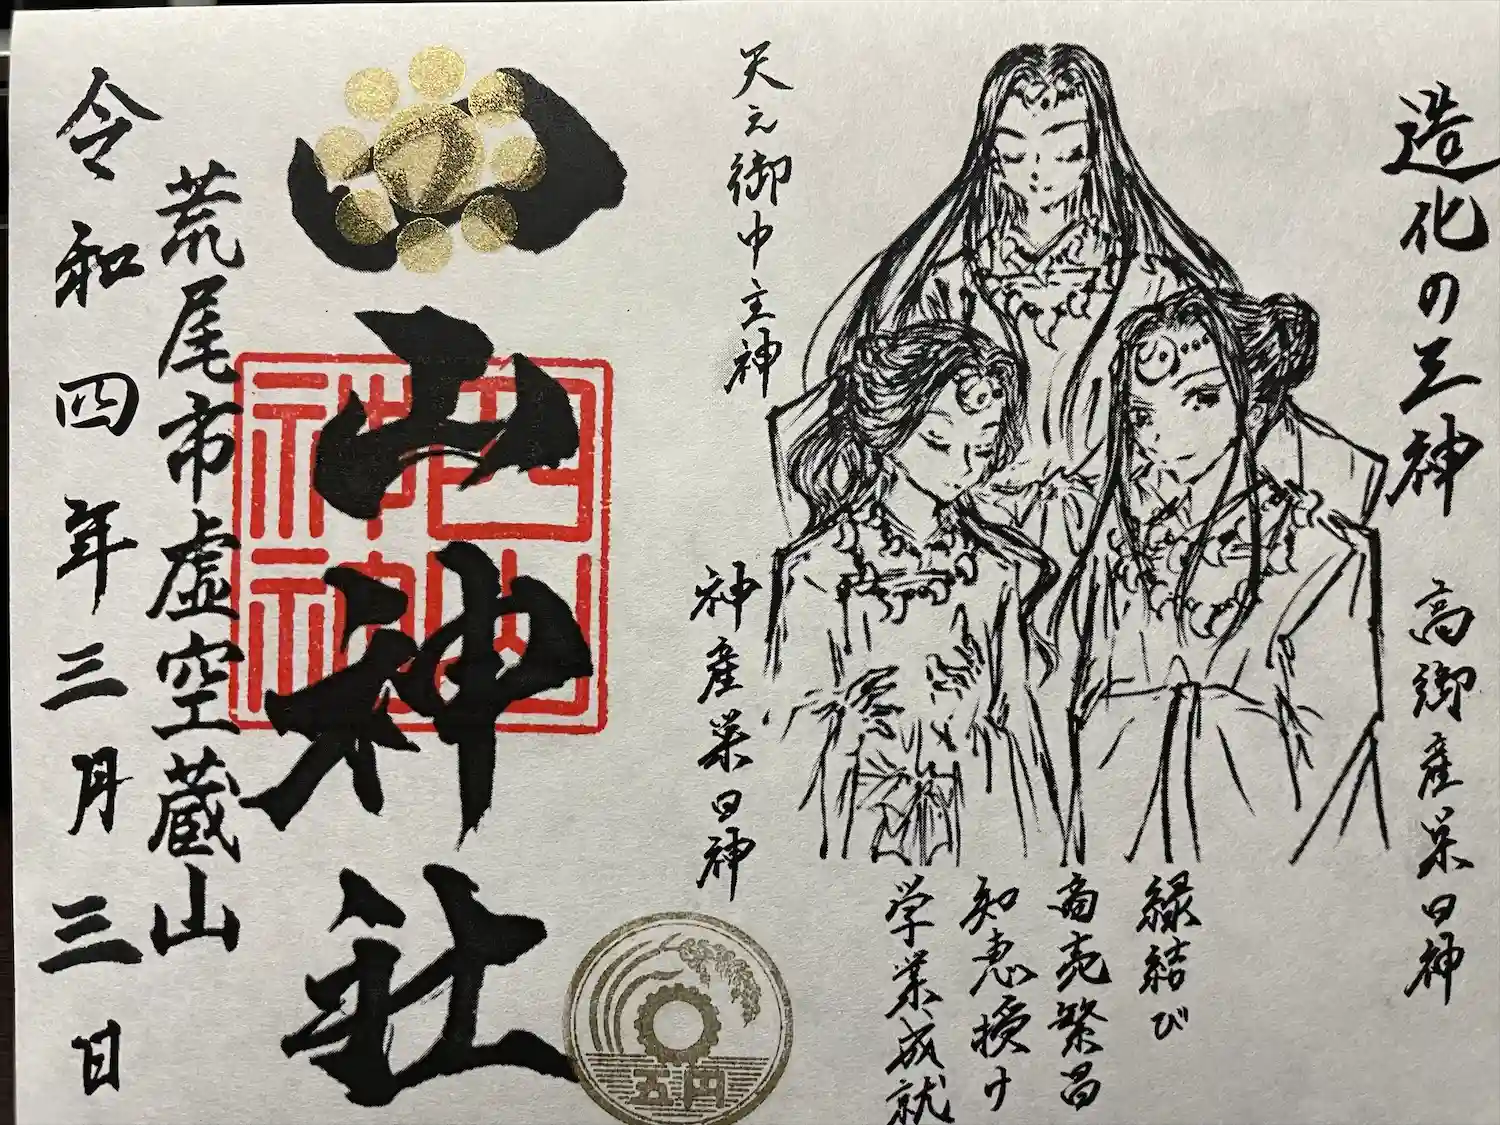 造化の三神
高御産巣日神
天之御中主神
神産巣日神
縁結び
商売繁昌
知恵授け
学業成就
四山神社
四山神社
五円
荒尾市虚空蔵山
令和四年三月三日